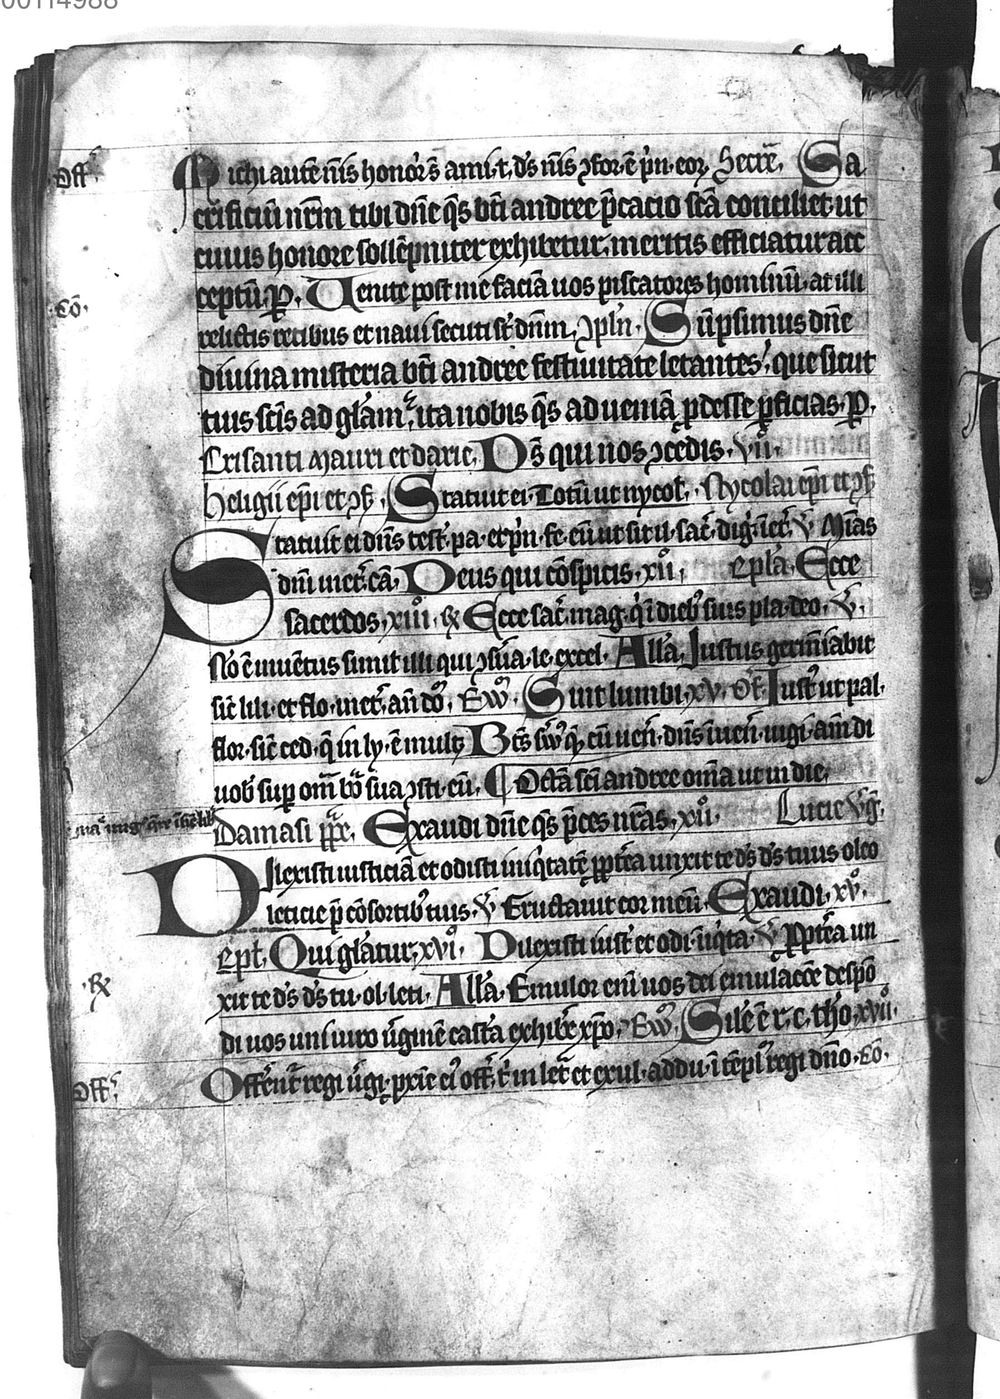 00114988
Off᷎. Michi autē nīs honorͬ s̄ ami.t. d͛s nīs ꝯfor.ē pͥn.eoꝝ Secre᷎. Sa
crificiū nr̄m tibi dn̄e q̄s bt̄i andree p̄catio sc̄a conciliet. ut
cuius honore sollēpniter exhibetur. meritis efficiatur acc
ceptū. ꝑ. Uenite post me faciā uos piscatores hominū. at illi
Cō. relictis retibus et naui secuti st͛ dn̄m. ꝯpl᷎n. Sūpsimus dn̄e
diuina misteria bt̄i andree festiuitate letantes. que sicut
tuis sc̄is ad gl᷎am. ita nobis q̄s ad ueniā ꝓdesse ꝑficias. ꝑ.
Crisanti Mauri et darie. Ds̄ qui nos ꝯcedis. vii᷎.
heligii ep̄i et ꝯf᷎. Statuit ei. Totū ut nycol᷎. Nycolai ep̄i et ꝯf᷎
Statuit ei dn̄s test᷎. pa. et pͥn. fe. eū ut sit il. sac᷎. dig᷎. īet᷎. ℣ Mīas
dn̄i inet᷎. cā. Deus qui cōspicis. xii᷎. epl᷎a. Ecce
sacerdos. xiii᷎. ℞ Ecce sac᷎. mag. qͥ ī dieb᷎ suis pla. deo. ℣.
Nō ē inuētus simil illi qui ꝯs᷎ua. le. excel. All᷎a. Justus germīabit
sic᷎ lili. et flo. inet᷎. an̄ do᷎. Ew᷎. Sint lumbi. xv. Of᷎. Just᷎ ut pal.
flor. sic᷎ ced. q̄ in ly. ē mulꝫ Bt͛s s᷎uꝰ qͥ. cū uen̄. dn̄s īuen̄. uigi. am̄ di
uob᷎ sup̱ om᷎ bō᷎ sua ꝯsti. eū. ¶ Octā sc̄i andree om̄a ut in die.
Damasi p̄pe. Exaudi dn̄e q̄s p̄ces nr̄as. xii᷎. Lucie v᷎g᷎.
Dilexisti iusticiā et odisti iniqͥtatē ꝓpt᷎ea unxit te d͛s d͛s tuus oleo
leticie p̄ cōsortib᷎ tuis. ℣ Eructauit cor meū. Exaudi. xv᷎.
Epl᷎. Qui gl᷎atur. xvi᷎. Dilexisti iust᷎ et odi. īiqͥta. ℣ Ꝓpt᷎ea un
℞ xit te d͛s d͛s tu. ol. leti. All᷎a. Emulor eni᷎ uos dei emul᷎acōe despō
di uos uni uiro u᷎ginē casta exhib᷎e xp̄o. Ew᷎. Sil᷎e ē r. c. tho. xvii᷎.
Off᷎. Offerent᷎ regi u᷎gi. pxīe eiꝰ off᷎. t᷎ in let᷎ et exul. addu. ī tēpl᷎ regi dn̄o. Cō.